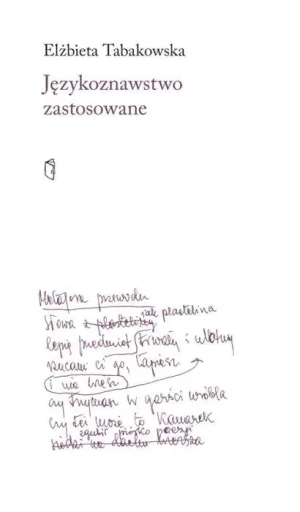 Elżbieta Tabakowska
Językoznawstwo
zastosowane
Metafora przewodu
jak plastelina
Słowa z plasteliny
lepię przedmiot trwały i ulotny
rzucam ci go, łapiesz
i nie wiesz
czy trzymasz w garści wróbla
czy też może to kanarek
zgubił piórko poezji
siedzi na dachu